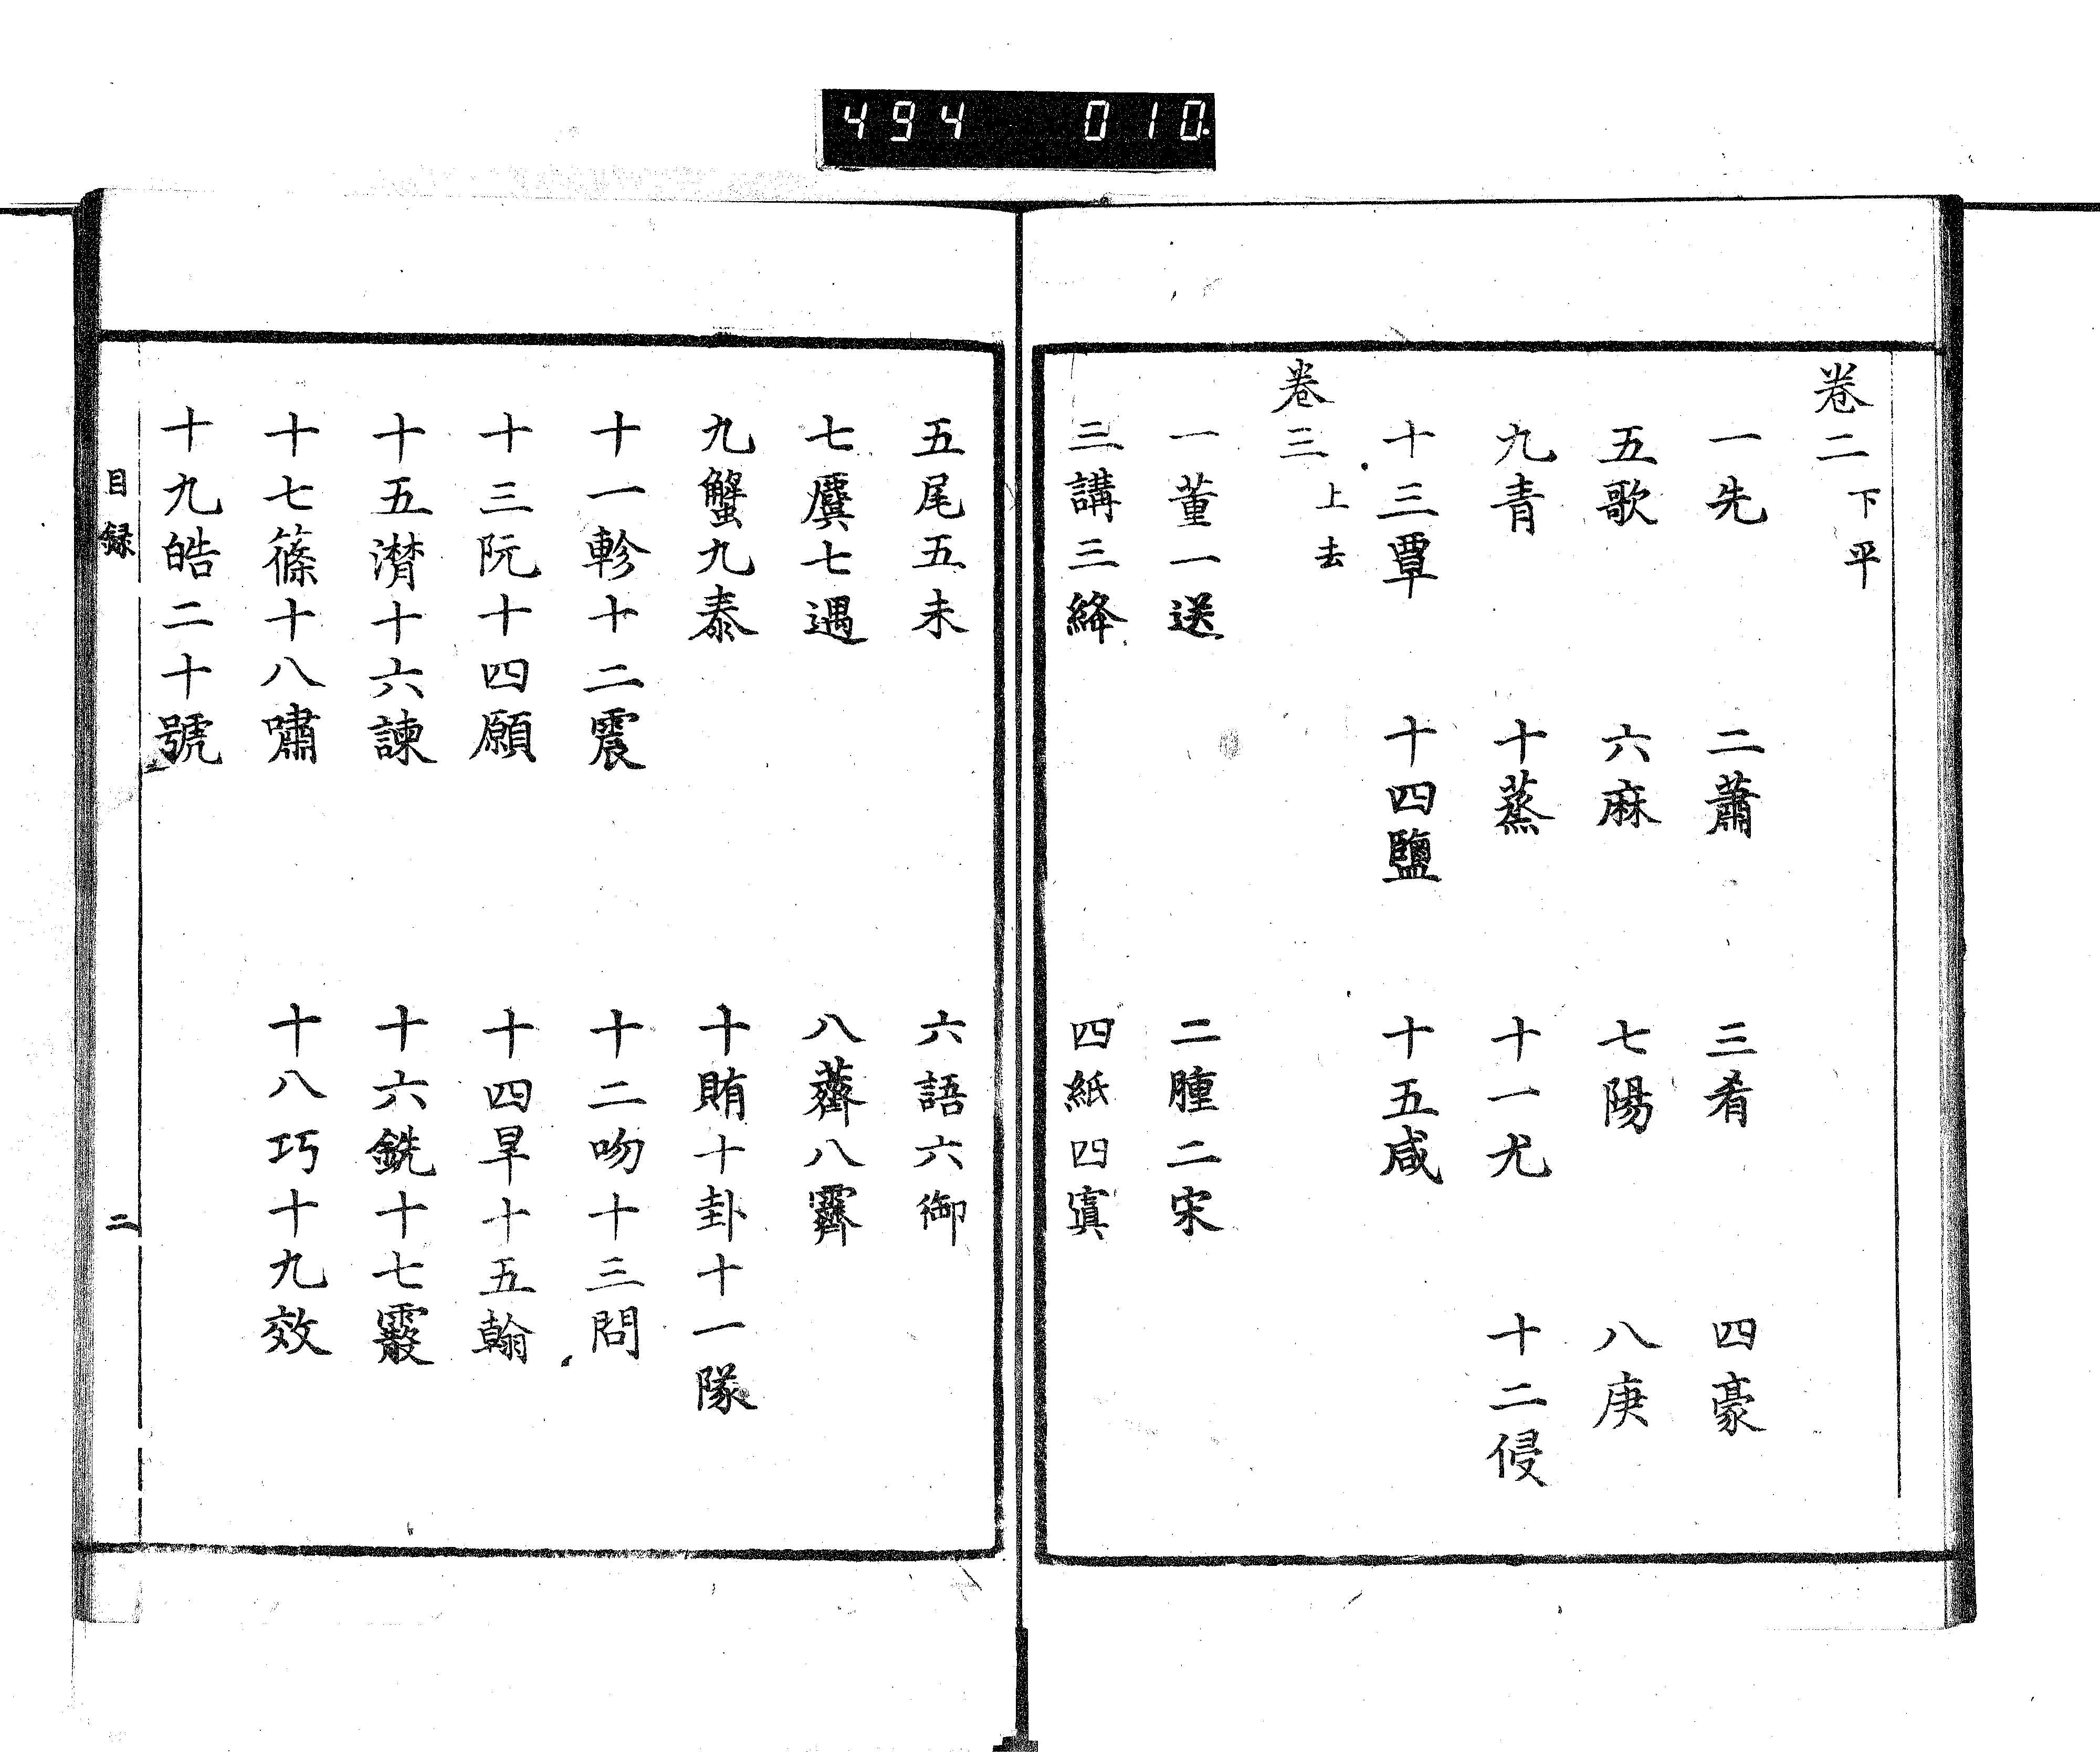 494 010.
卷二 下平
一先 二蕭 三肴 四豪
五歌 六麻 七陽 八庚
九青 十蒸 十一尤 十二侵
十三覃 十四鹽 十五咸
卷三 上去
一董一送 二腫二宋
三講三絳 四紙四寘
五尾五未 六語六御
七麌七遇 八薺八霽
九蟹九泰 十賄十卦十一隊
十一軫十二震 十二吻十三問
十三阮十四願 十四旱十五翰
十五潸十六諫 十六銑十七霰
十七篠十八嘯 十八巧十九效
十九皓二十號
目録 二